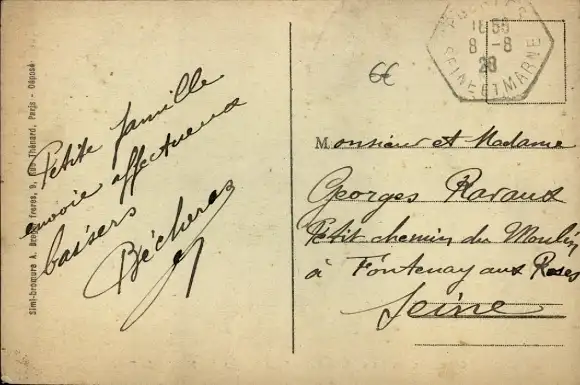 Petite famille
envoie affectueux
baisers
Béchera
Simi-bromure A. Breger frères, 9, Rue Thénard, Paris - Déposé
18 55
8 -8
28
SEINE ET MARNE
6€
Monsieur et Madame
Georges Ravaux
Petit chemin du Moulin
à Fontenay aux Roses
Seine